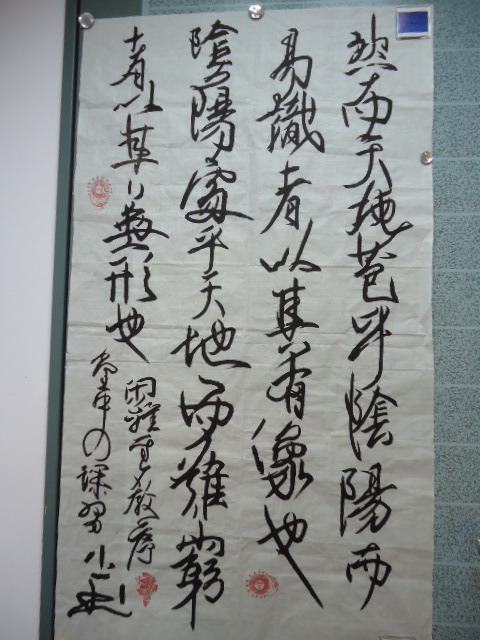 然而天地苞乎陰陽而
易識者以其有像也
陰陽處乎天地而難窮
者以其無形也
聞雅聖教序